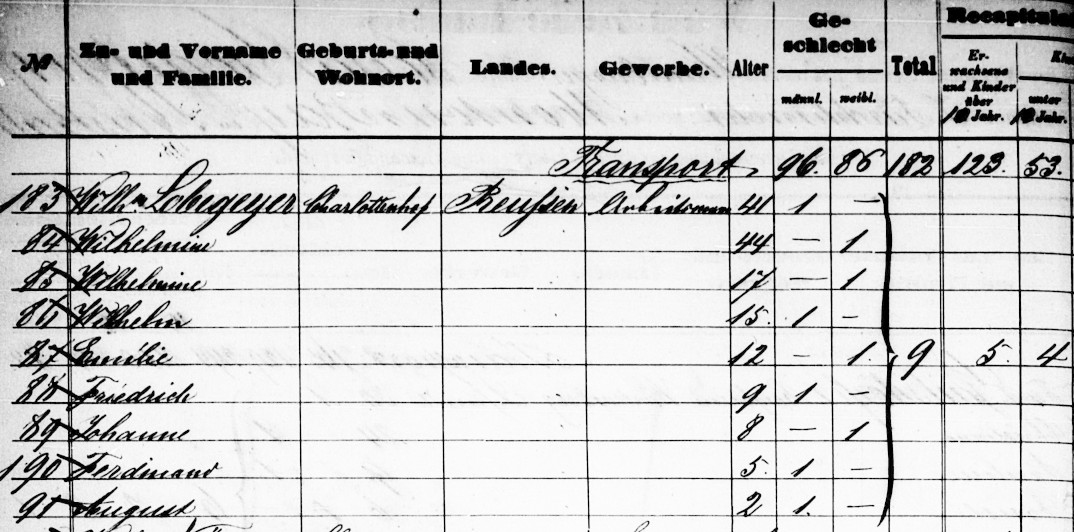 № Zu- und Vorname und Familie. Geburts- und Wohnort. Landes. Gewerbe. Alter Ge-schlecht männl. weibl. Total Recapitula Er-wachsene und Kinder über 10 Jahr. Ki unter 10 Jahr.
Transport. 96. 86 182 123. 53.
183 Wilh. Charlottenhof Preußen Arbeitsmann 41 1 —
84 Wilhelmine 44 — 1
85 Wilhelmine 17 — 1
86 Wilhelm 15. 1 —
87 Emilie 12 — 1. 9 5. 4
88 Friedrich 9 1 —
89 Johanne 8 — 1
190 Ferdinand 5. 1 —
91 August 2 1. —